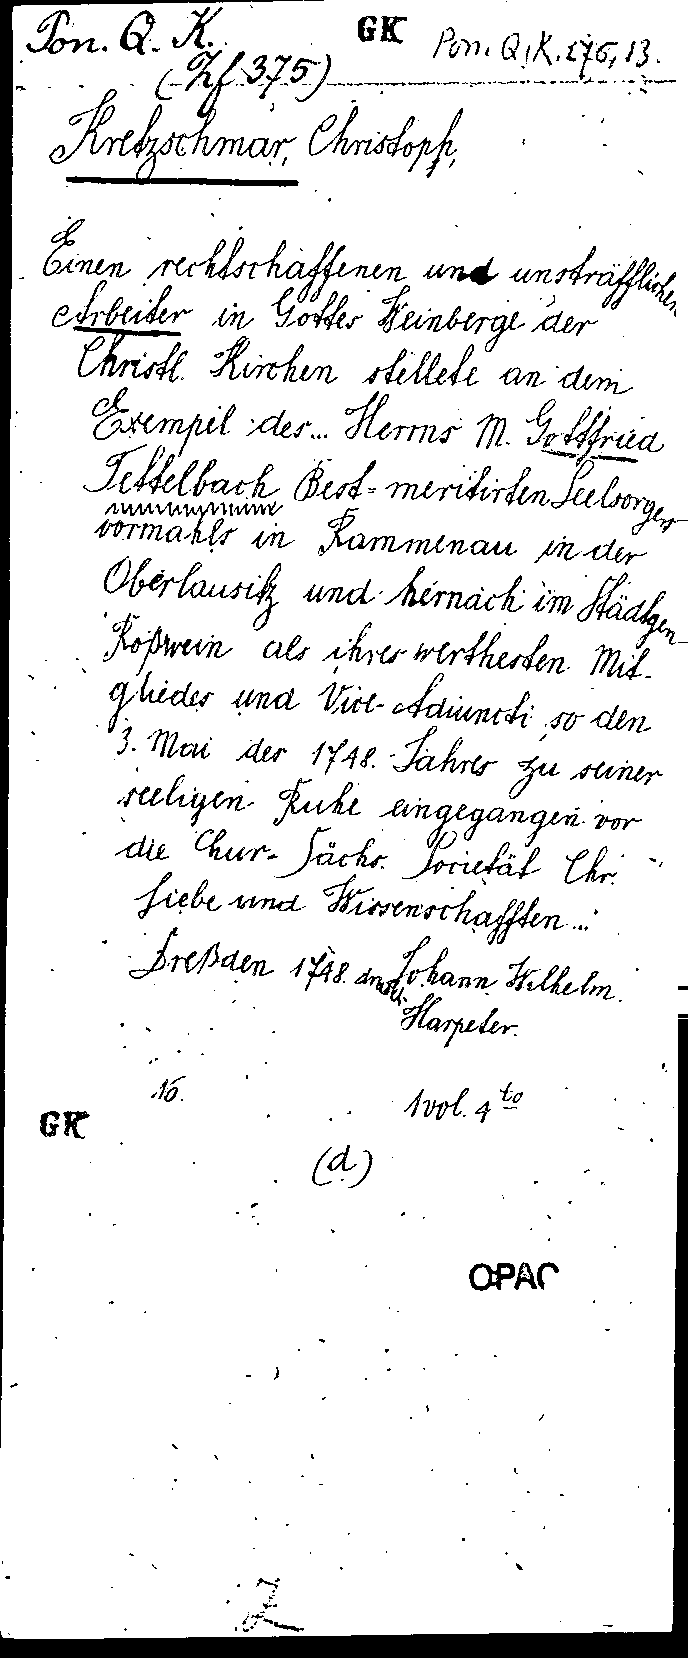 Pon. Q. K. GK Pon. Q. K. 276, 13.
(Zf 375)
Kretzschmar, Christoph,
Einen rechtschaffenen und unsträfflichen
Arbeiter in Gottes Weinberge der
Christl. Kirchen stellete an dem
Exempel des... Herrns M. Gottfried
Tettelbach Best-meritirten Seelsorgers
vormahls in Rammenau in der
Oberlausitz und hernach im Städtgen
Roßwein als ihres werthesten Mit-
gliedes und Vice-Adiuncti so den
3. Mai des 1748. Jahres zu seiner
seeligen Ruhe eingegangen vor
die Chur-Sächs. Societät Chr.
Liebe und Wissenschafften...
Dreßden 1748. Johann Wilhelm
Harpeter.
1 vol. 4to
GK
(d)
OPAC